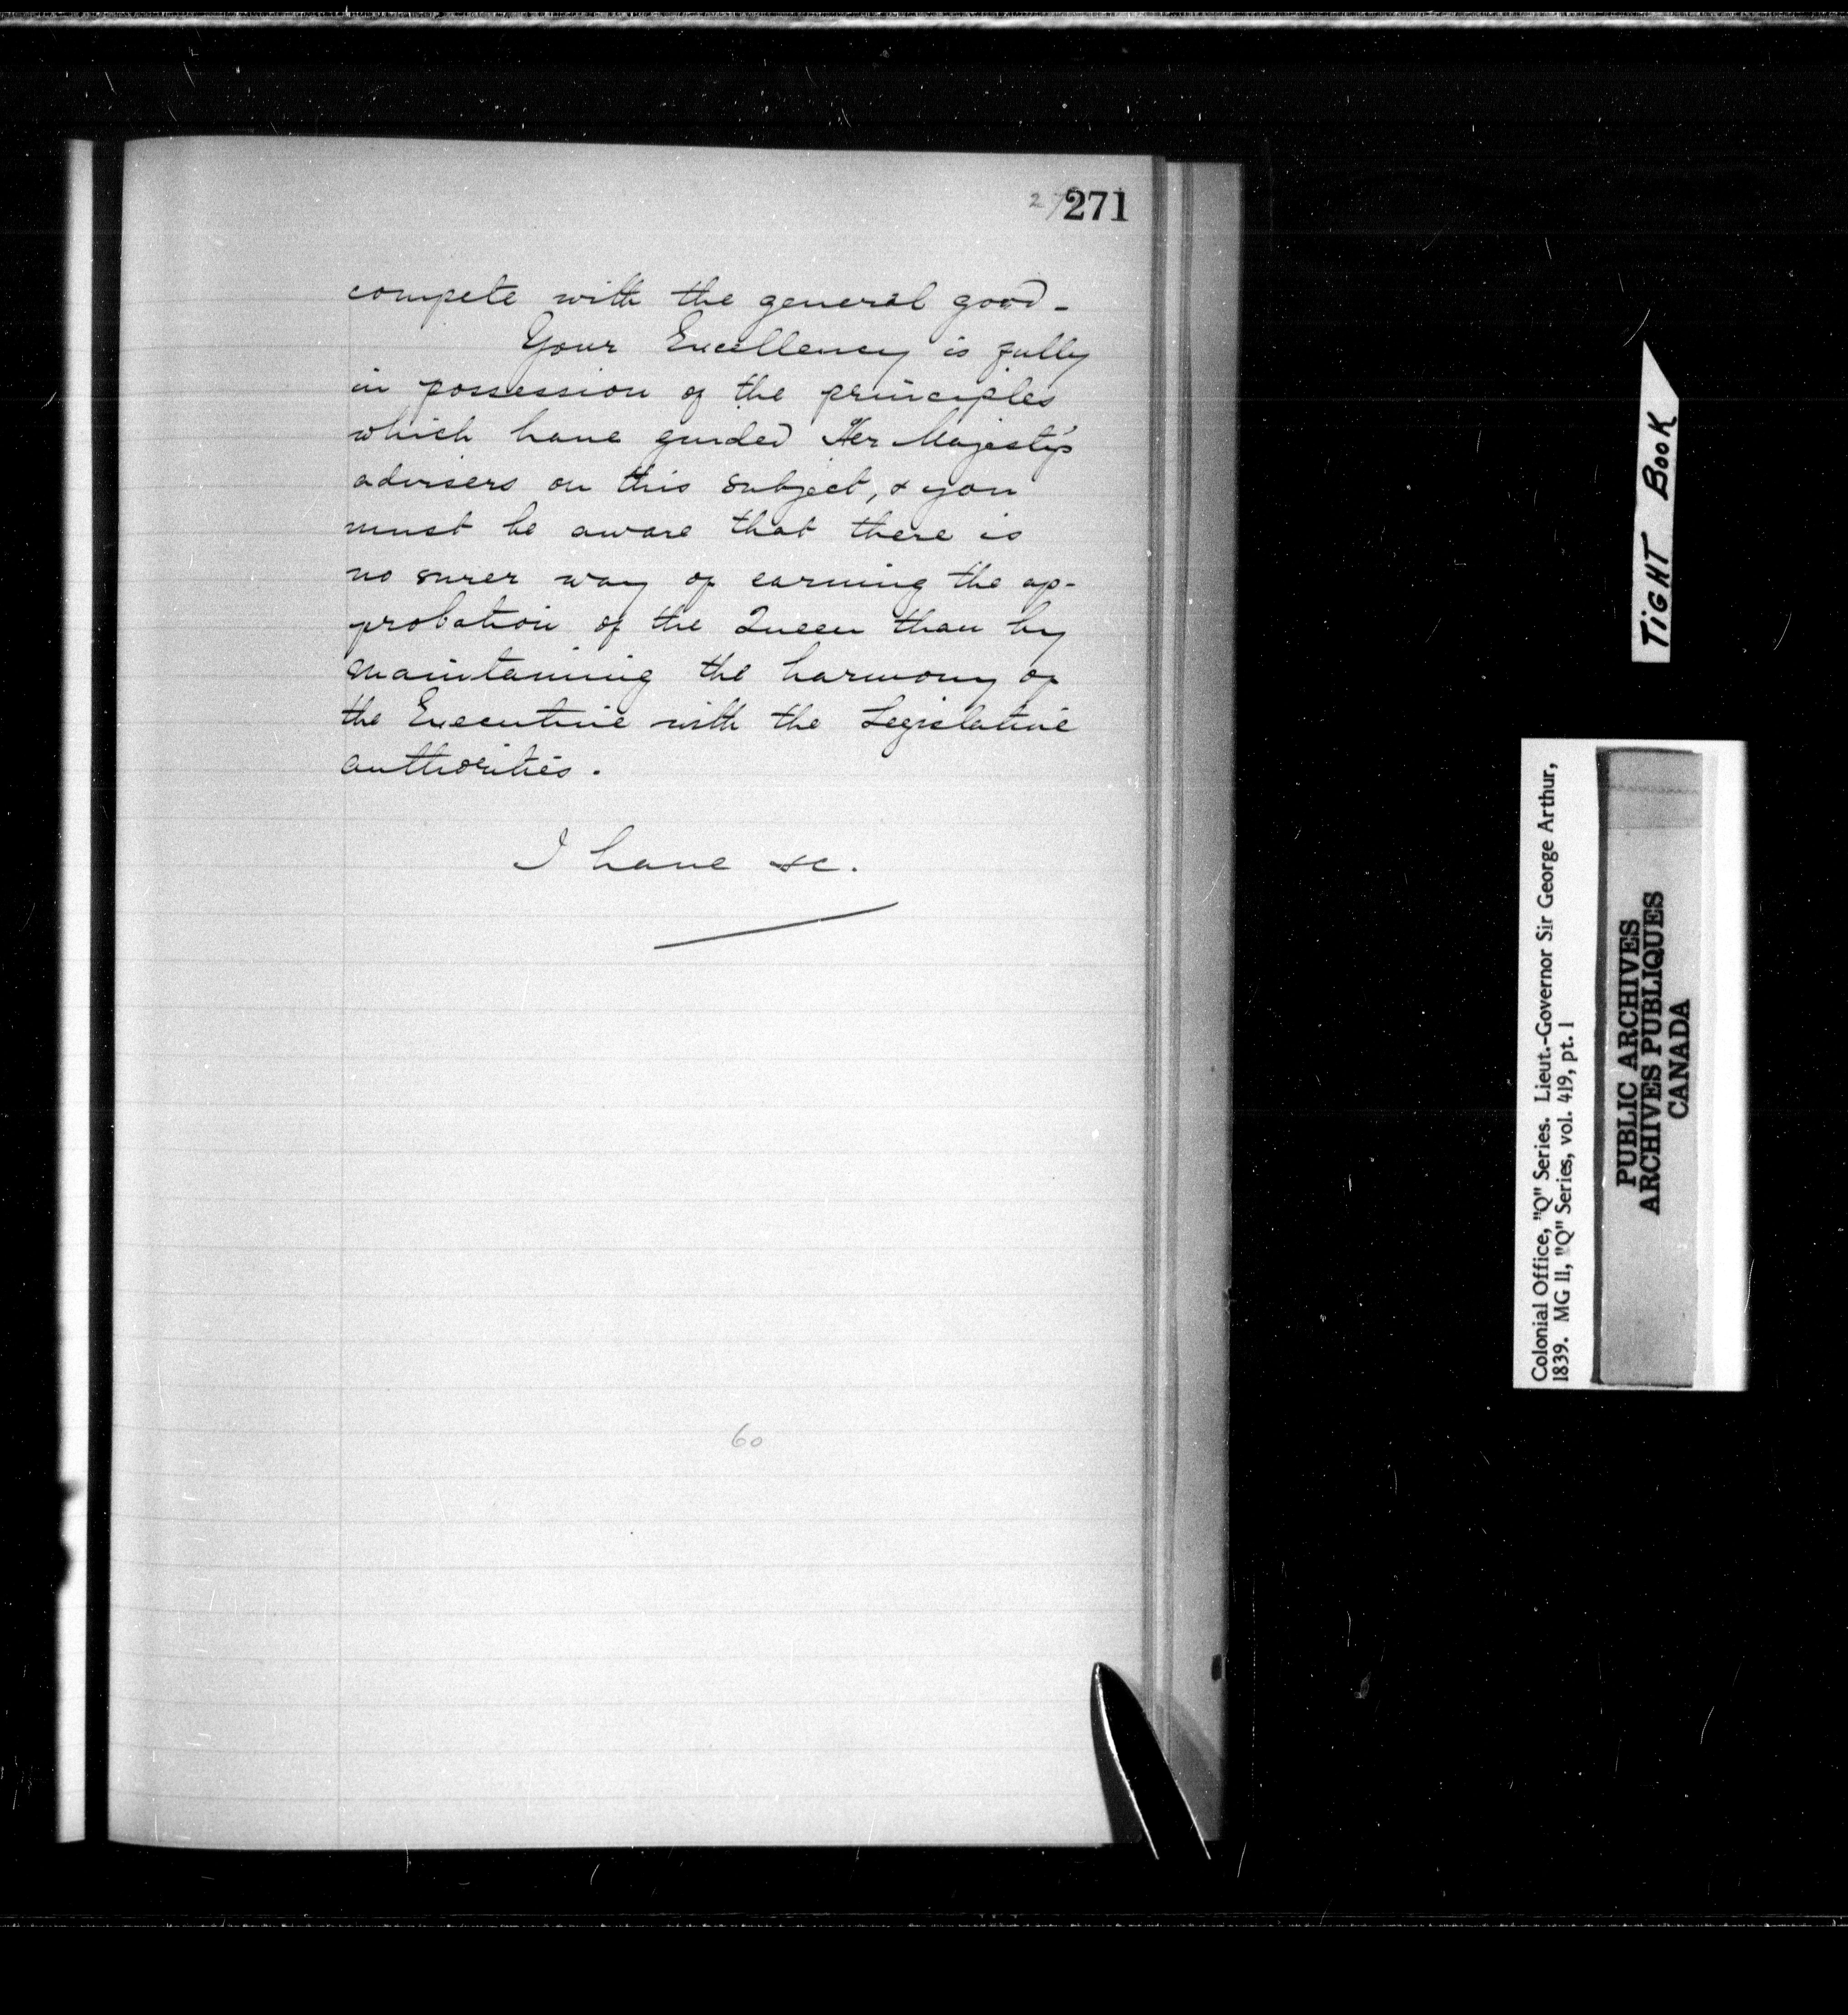 271
compete with the general good-
Your Excellency is fully
in possession of the principles
which have guided Her Majesty's
advisers on this subject, & you
must be aware that there is
no surer way of earning the ap-
probation of the Queen than by
maintaining the harmony of
the Executive with the Legislative
authorities.
I have &c.
60
TIGHT BOOK
Colonial Office, "Q" Series. Lieut.-Governor Sir George Arthur,
1839. MG 11, "Q" Series, vol. 419, pt. 1
PUBLIC ARCHIVES
ARCHIVES PUBLIQUES
CANADA